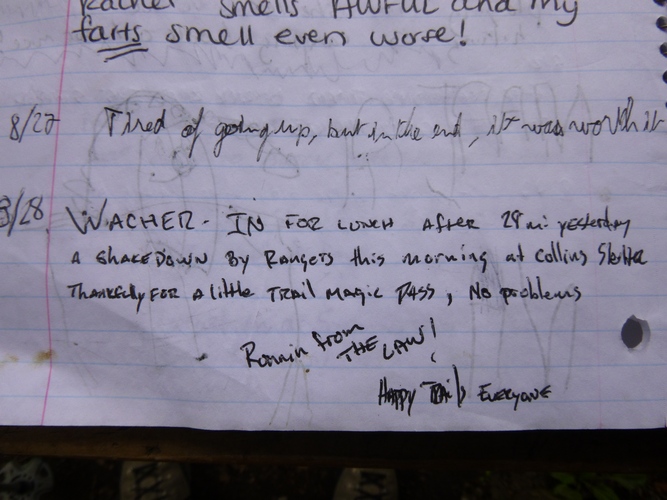 smells AWFUL and my
farts smell even worse!
8/27 Tired of going up, but in the end, it was worth it
8/28 WACHER - IN FOR LUNCH AFTER 29 mi yesterday
A SHAKEDOWN By Rangers this morning at Collins Shelter
THANKFully FOR A little TRAIL MAGIC PASS, No problems
from
THE LAW!
HAPPY TRAILS EVERYONE